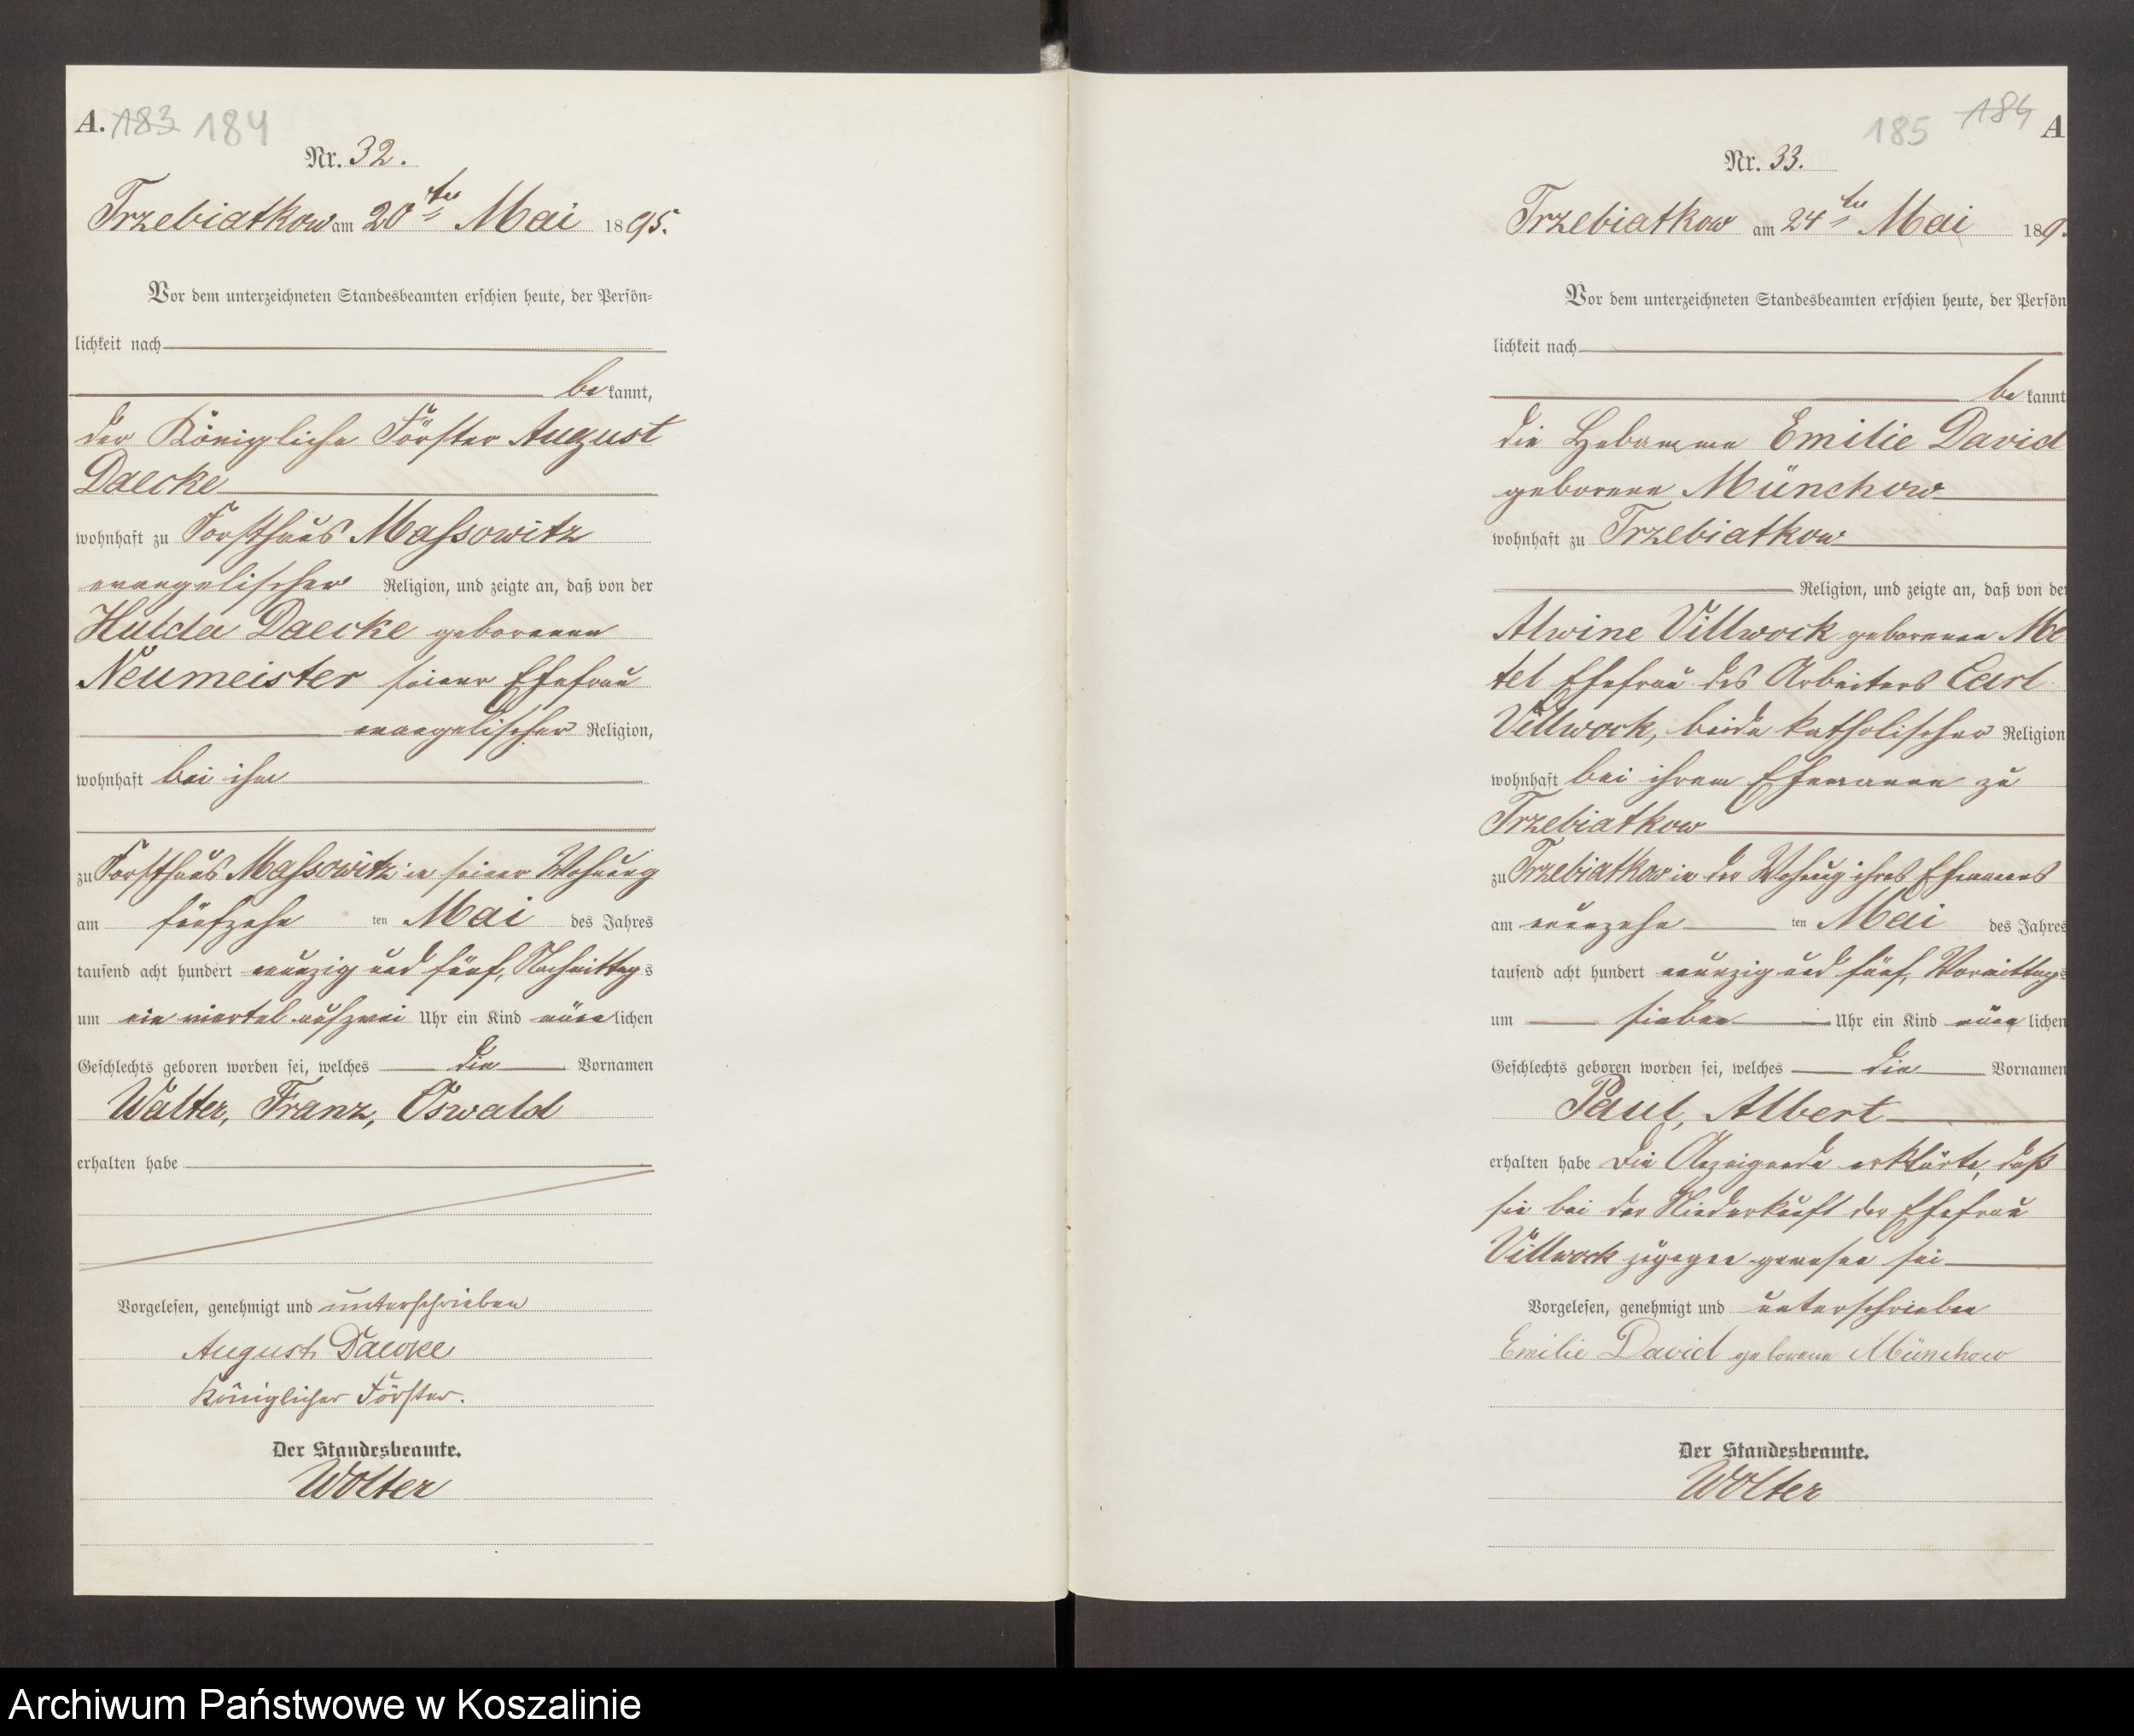 A. 183 184
Nr. 32.
Trzebiatkow am 20ten Mai 1895.
Vor dem unterzeichneten Standesbeamten erschien heute, der Persön-
lichkeit nach
bekannt,
der Königliche Förster August
Daecke
wohnhaft zu Forsthaus Massowitz
evangelischer Religion, und zeigte an, daß von der
Hulda Daecke geborenen
Neumeister seiner Ehefrau
evangelischer Religion,
wohnhaft bei ihm
zu Forsthaus Massowitz in seiner Wohnung
am fünfzehn ten Mai des Jahres
tausend acht hundert neunzig und fünf, Nachmittags
um ein viertel auf zwei Uhr ein Kind männlichen
Geschlechts geboren worden sei, welches die Vornamen
Walter, Franz, Oswald
erhalten habe
Vorgelesen, genehmigt und unterschrieben
August Daecke
Königlicher Förster.
Der Standesbeamte.
Wolter
185 184 A
Nr. 33.
Trzebiatkow am 24ten Mai 189
Vor dem unterzeichneten Standesbeamten erschien heute, der Persön
lichkeit nach
bekannt
die Hebamme Emilie David
geborene Münchow
wohnhaft zu Trzebiatkow
Religion, und zeigte an, daß von der
Alwine Villwock geborenen Me
tel Ehefrau des Arbeiters Carl
Villwock, beide katholischer Religion
wohnhaft bei ihrem Ehemanne zu
Trzebiatkow
zu Trzebiatkow in der Wohnung ihres Ehemannes
am neunzehn ten Mai des Jahres
tausend acht hundert neunzig und fünf, Vormittags
um sieben Uhr ein Kind männlichen
Geschlechts geboren worden sei, welches die Vornamen
Paul, Albert
erhalten habe Die Anzeigende erklärte, daß
sie bei der Niederkunft der Ehefrau
Villwock zugegen gewesen sei
Vorgelesen, genehmigt und unterschrieben
Emilie David geborene Münchow
Der Standesbeamte.
Wolter
Archiwum Państwowe w Koszalinie